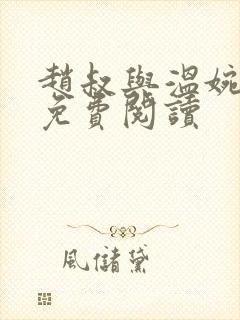 趙叔與溫婉
免費閱讀
風儲黛